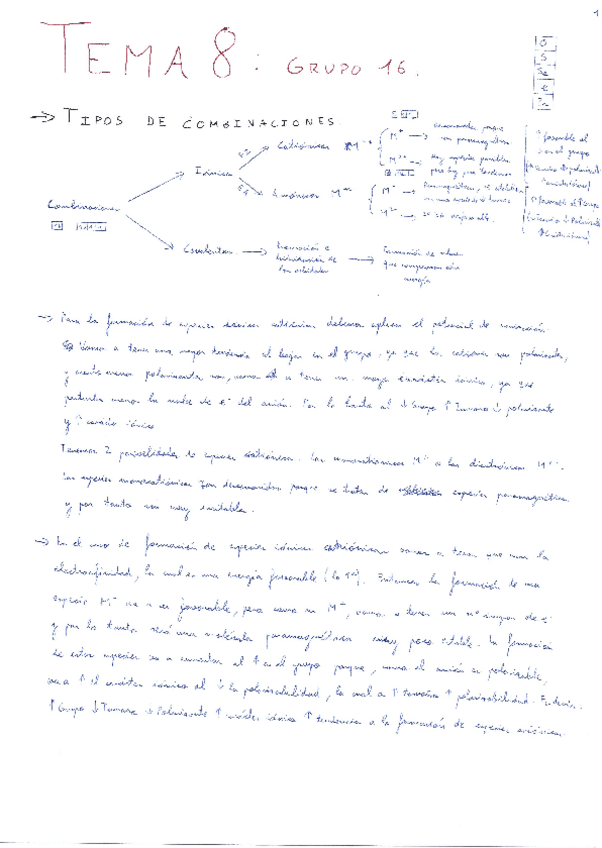 1
TEMA 8: GRUPO 16.
O
S
Se
Te
→ TIPOS DE COMBINACIONES
Combinaciones
Iónicas
Catiónicas
Aniónicas
M⁺ → porque son paramagnéticas
M²⁺ → Hay especies parecidas
M⁻ → Paramagnéticas,
M²⁻ →
Covalentes → Promoción e hibridación de los orbitales → Formación de enlaces que compensan esta energía
→ Para la formación de especies iónicas catiónicas debemos aplicar el potencial de ionización.
vamos a tener una mayor tendencia al bajar en el grupo, ya que los cationes son polarizantes,
y cuanto menos polarizantes son, vamos a tener un mayor carácter iónico, ya que
perturba menos la nube de e⁻ del anión. Por lo tanto al ↓ Grupo ↑ Tamaño ↓ polarizante
y ↑ carácter iónico
Tenemos 2 posibilidades de especies catiónicas. Las monocatiónicas M⁺ o las dicatiónicas M²⁺.
Las especies monocatiónicas son desconocidas porque se tratan de especies paramagnéticas
y por tanto son muy inestables.
→ En el caso de formación de especies iónicas vamos a tener que usar la
electroafinidad, la cual es una energía favorable (la 1ª). Entonces la formación de una
especie M⁻ va a ser favorable, pero como en M⁻, vamos a tener un nº impar de e⁻
y por lo tanto será una molécula paramagnética muy poco estable. La formación
de estas especies va a aumentar al ↑ en el grupo porque, como el anión es polarizable,
va a ↑ el carácter iónico al ↓ la polarizabilidad, la cual a ↑ tamaño ↑ polarizabilidad. Es decir:
↑ Grupo ↓ Tamaño ↓ Polarizante ↑ carácter iónico ↑ tendencia a la formación de especies aniónicas.